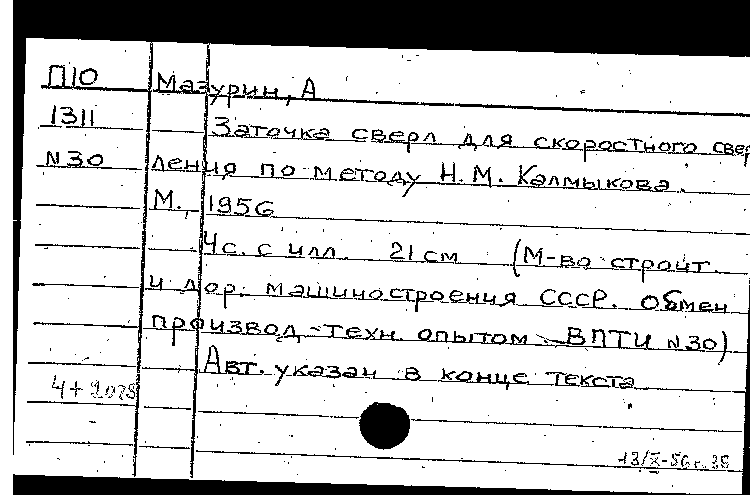 П10 Мазурин, А
1311 Заточка сверл для скоростного свер
N30 ления по методу Н.М. Калмыкова.
М., 1956
4с. с илл. 21 см (М-во строит.
и дор. машиностроения СССР. Обмен
производ.-техн. опытом ВПТИ N30)
Авт. указан в конце текста
13/X-56г.